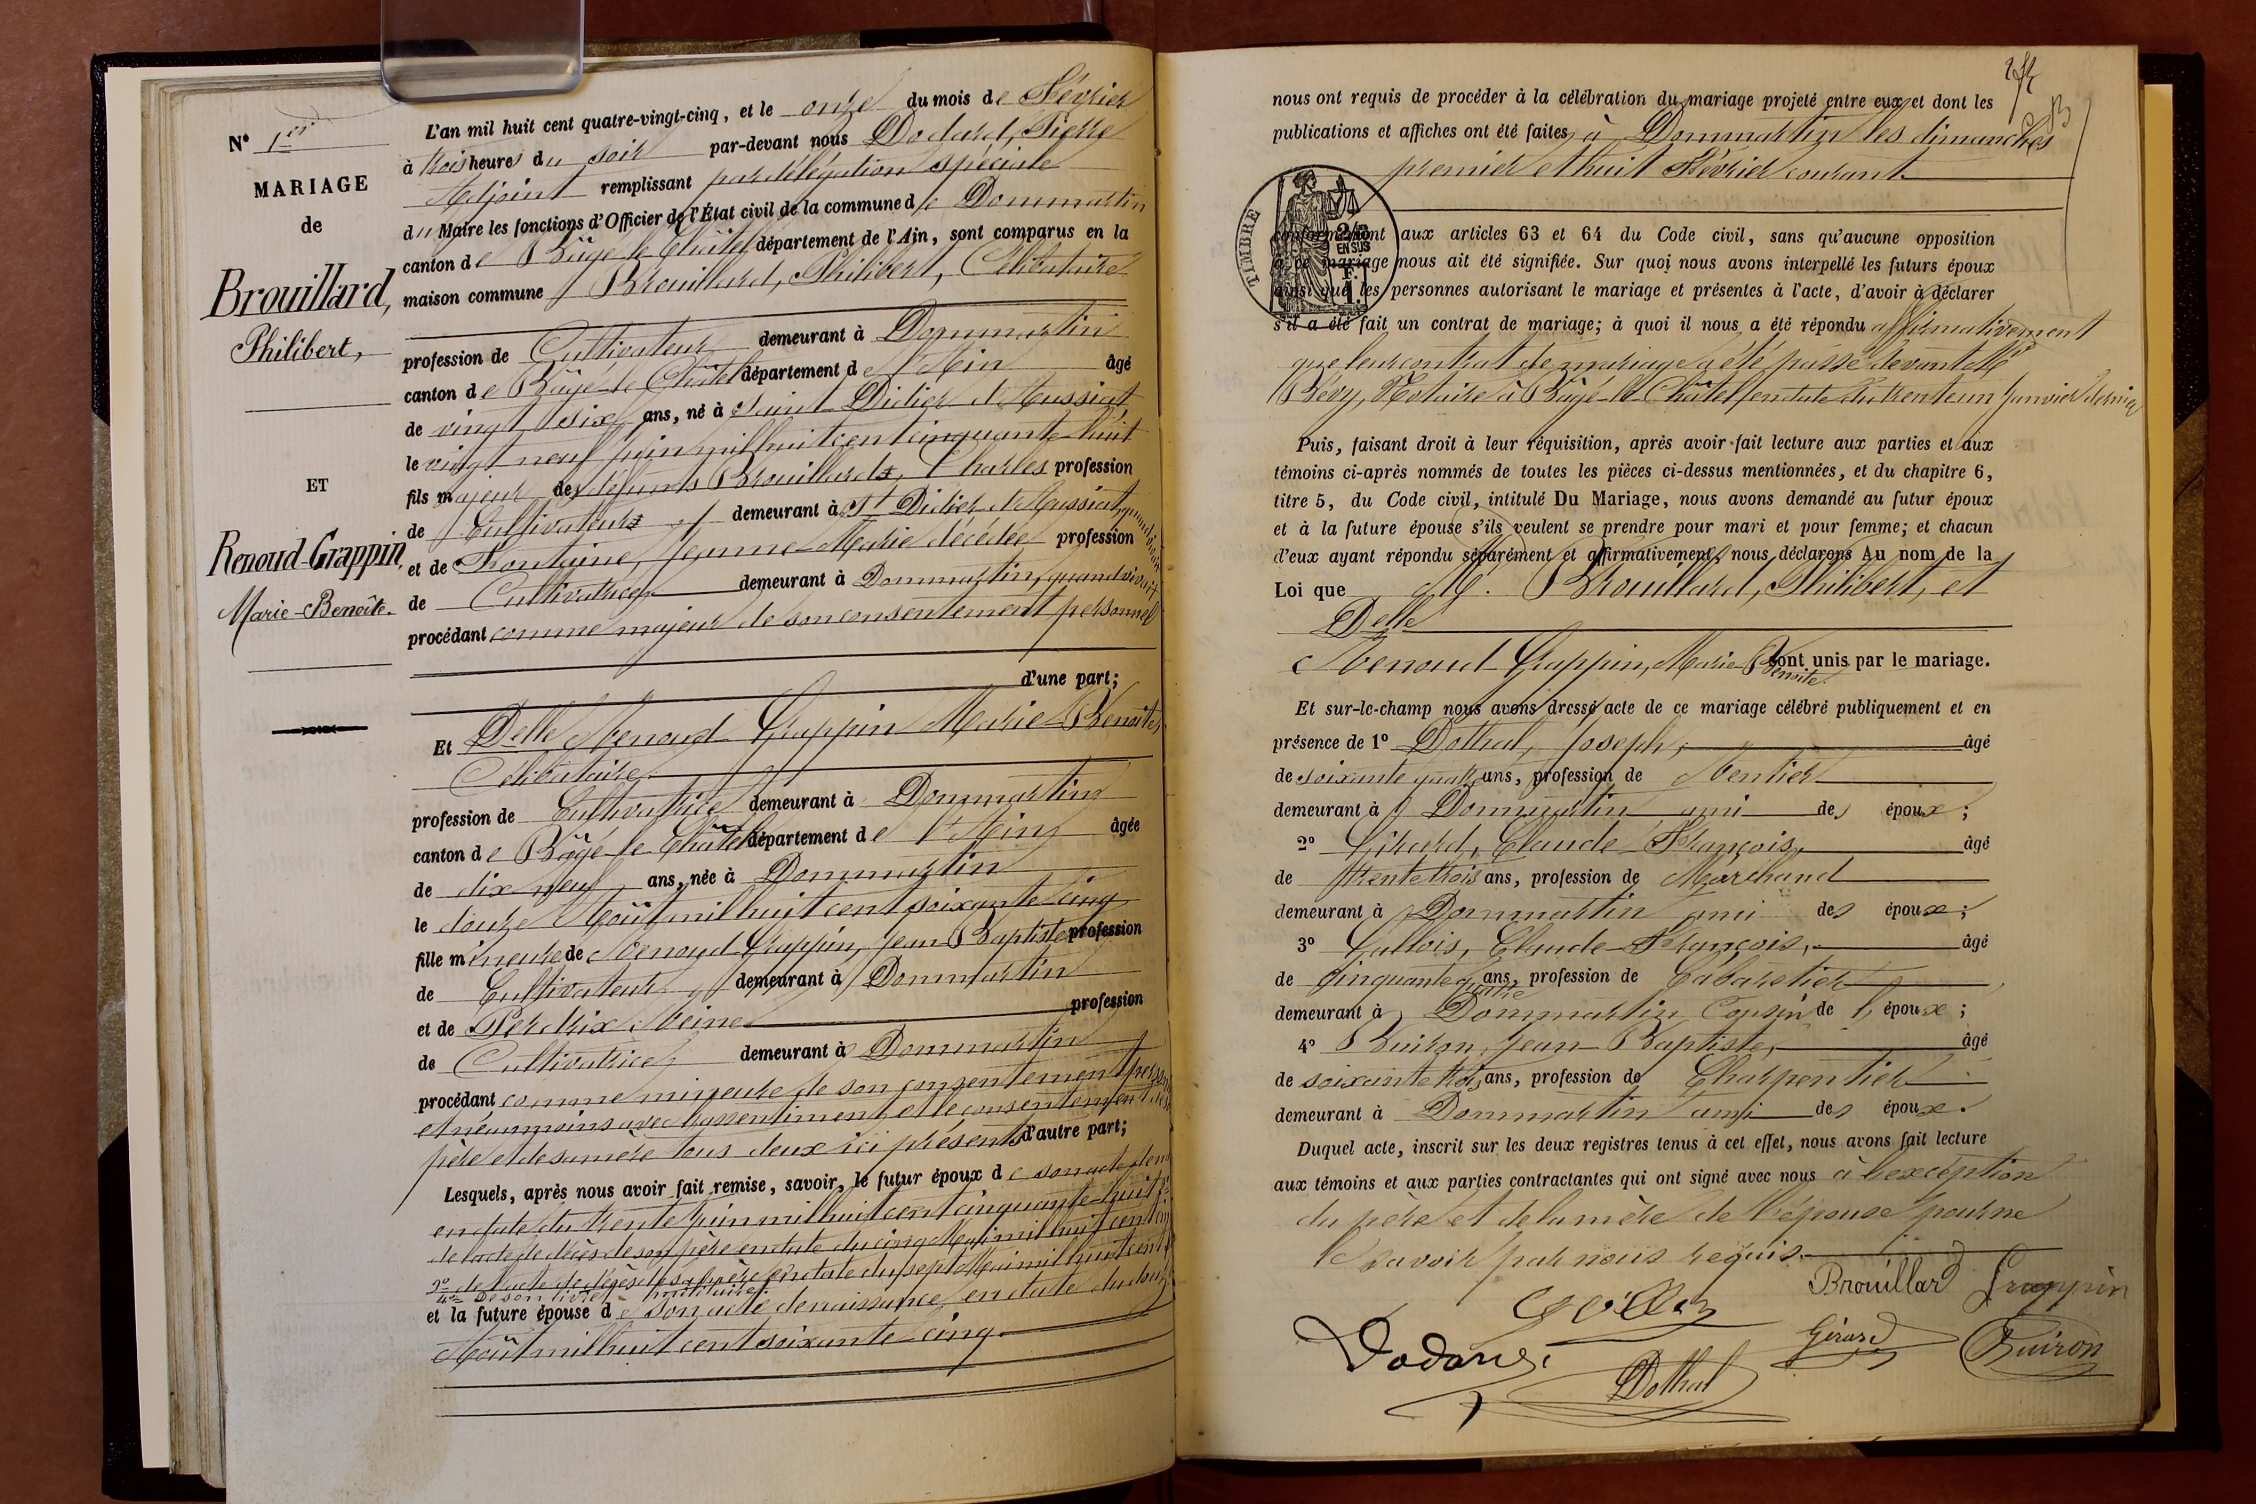 N° 1er
MARIAGE
de
Brouillard,
Philibert,
ET
Renoud-Grappin,
Marie-Benoite.
L'an mil huit cent quatre-vingt-cinq, et le onze du mois de Février
à trois heures du soir par-devant nous Dodard, Pierre
Adjoint remplissant par délégation spéciale
du Maire les fonctions d'Officier de l'État civil de la commune de Dommartin
canton de Bâgé-le-Châtel département de l'Ain, sont comparus en la
maison commune Brouillard, Philibert, Célibataire
profession de Cultivateur demeurant à Dommartin
canton de Bâgé-le-Châtel département de l'Ain âgé
de vingt six ans, né à Saint-Didier d'Aussiat
le vingt neuf juin mil huit cent cinquante-huit
fils majeur des défunts Brouillard, Charles profession
de Cultivateur demeurant à St Didier d'Aussiat, quand vivait
et de Fontaine, Jeanne-Marie décédée profession
de Cultivatrice demeurant à Dommartin, quand vivait
procédant comme majeur de son consentement personnel
d'une part;
Et Delle Renoud-Grappin Marie-Benoite,
Célibataire,
profession de Cultivatrice demeurant à Dommartin
canton de Bâgé-le-Châtel département de l'Ain âgée
de dix neuf ans, née à Dommartin
le douze Août mil huit cent soixante cinq
fille mineure de Renoud-Grappin, Jean Baptiste profession
de Cultivateur demeurant à Dommartin
et de Perdrix Reine profession
de Cultivatrice demeurant à Dommartin
procédant comme mineure de son consentement
et néanmoins avec l'assentiment et le consentement de
père et de sa mère tous deux ici présents d'autre part;
Lesquels, après nous avoir fait remise, savoir, le futur époux de son acte de
en date du trente juin mil huit cent cinquante-huit
de l'acte de décès de son père en date du cinq Mai mil huit cent
de l'acte de décès de sa mère en date du sept Mai mil huit cent
4° De son livret militaire.
et la future épouse de son acte de naissance en date du douze
Août mil huit cent soixante-cinq.
nous ont requis de procéder à la célébration du mariage projeté entre eux et dont les
publications et affiches ont été faites à Dommartin les dimanches
premier et huit Février courant.
TIMBRE
2/10
EN SUS
F.
1.
conformément aux articles 63 et 64 du Code civil, sans qu'aucune opposition
à ce mariage nous ait été signifiée. Sur quoi nous avons interpellé les futurs époux
ainsi que les personnes autorisant le mariage et présentes à l'acte, d'avoir à déclarer
s'il a été fait un contrat de mariage; à quoi il nous a été répondu affirmativement
que leur contrat de mariage a été passé devant Me
Bévy, Notaire à Bâgé-le-Châtel en date du trente un Janvier dernier
Puis, faisant droit à leur réquisition, après avoir fait lecture aux parties et aux
témoins ci-après nommés de toutes les pièces ci-dessus mentionnées, et du chapitre 6,
titre 5, du Code civil, intitulé Du Mariage, nous avons demandé au futur époux
et à la future épouse s'ils veulent se prendre pour mari et pour femme; et chacun
d'eux ayant répondu séparément et affirmativement, nous déclarons Au nom de la
Loi que M. Brouillard, Philibert, et
Delle
Renoud-Grappin, Marie-Benoite sont unis par le mariage.
Et sur-le-champ nous avons dressé acte de ce mariage célébré publiquement et en
présence de 1° Dothal, Joseph, âgé
de soixante quatre ans, profession de Rentier
demeurant à Dommartin ami des époux;
2° Girard, Claude François, âgé
de trente trois ans, profession de Marchand
demeurant à Dommartin ami des époux;
3° Gallois, Claude-François, âgé
de cinquante quatre ans, profession de Cabaretier
demeurant à Dommartin Cousin de l'époux;
4° Buiron, Jean Baptiste, âgé
de soixante trois ans, profession de Charpentier
demeurant à Dommartin ami des époux.
Duquel acte, inscrit sur les deux registres tenus à cet effet, nous avons fait lecture
aux témoins et aux parties contractantes qui ont signé avec nous à l'exception
du père et de la mère de l'épouse pour ne
le savoir par nous requis.
Brouillard Grappin
Dodard
Dothal
Girard
Buiron